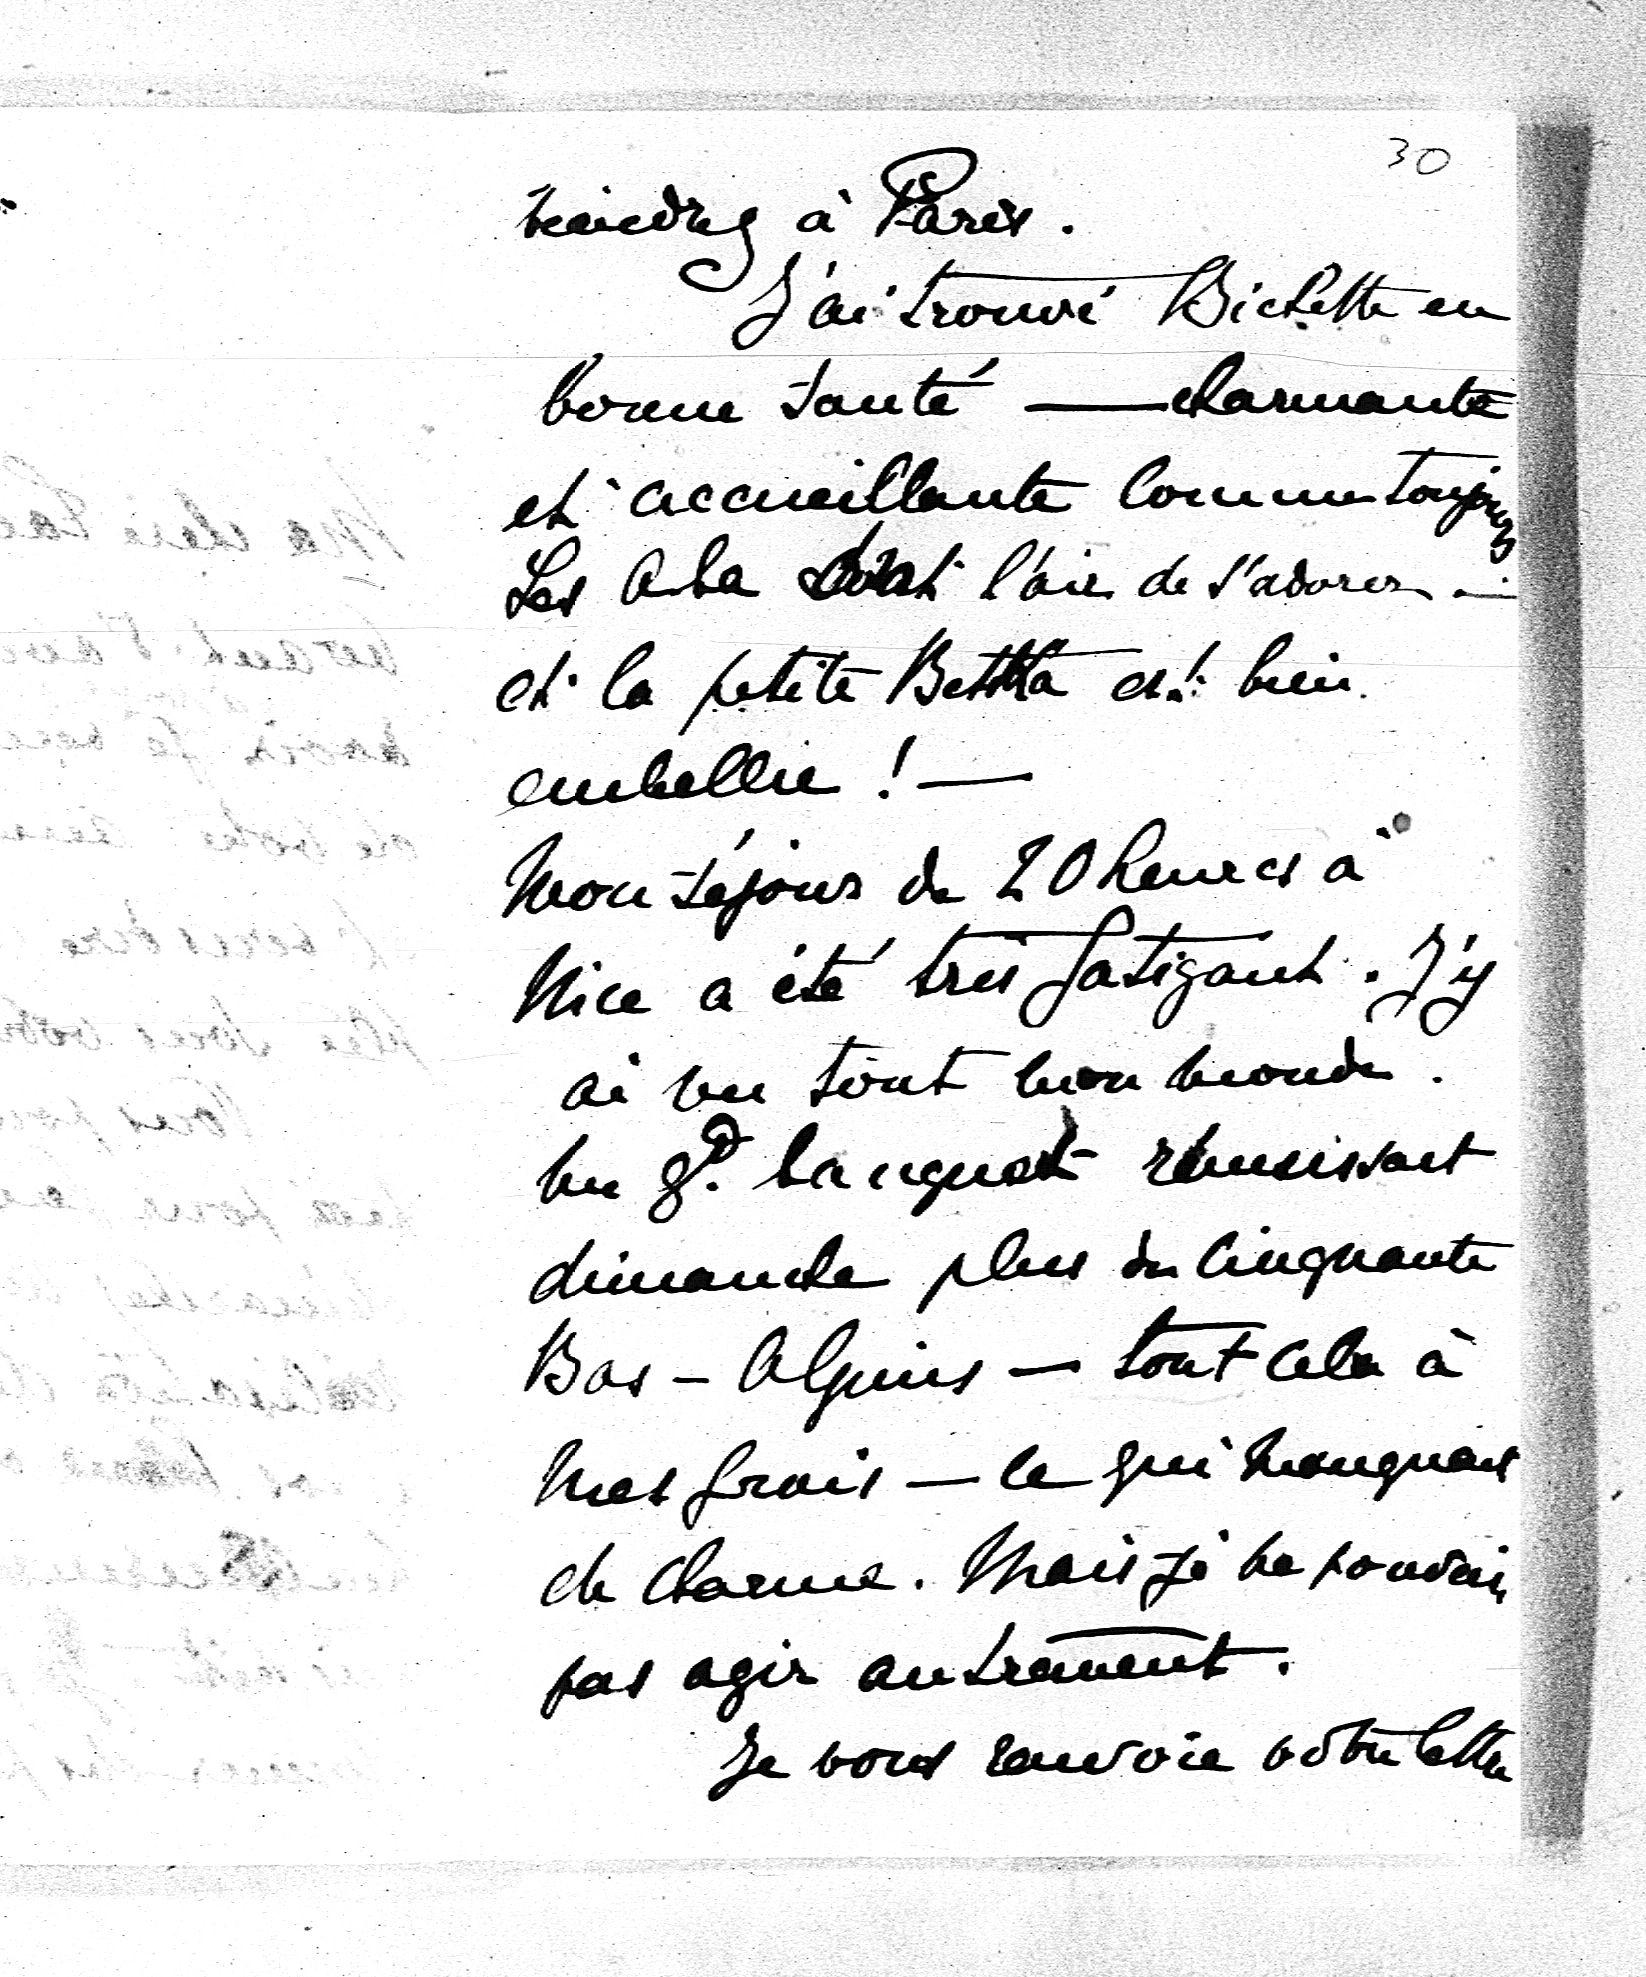 30
à Paris.
J'ai trouvé Bichette en
bonne santé — charmante
et accueillante comme toujours
Les Aba ont l'air de s'adorer —
et la petite Bettka est bien
embellie ! —
Mon séjour de 20 heures à
Nice a été très fatigant. J'y
ai vu tout mon monde.
un gd. banquet réunissait
dimanche plus de cinquante
Bas-Alpins — tout cela à
mes frais — ce qui manquait
de charme. Mais je ne pouvais
pas agir autrement.
Je vous renvoie votre lettre